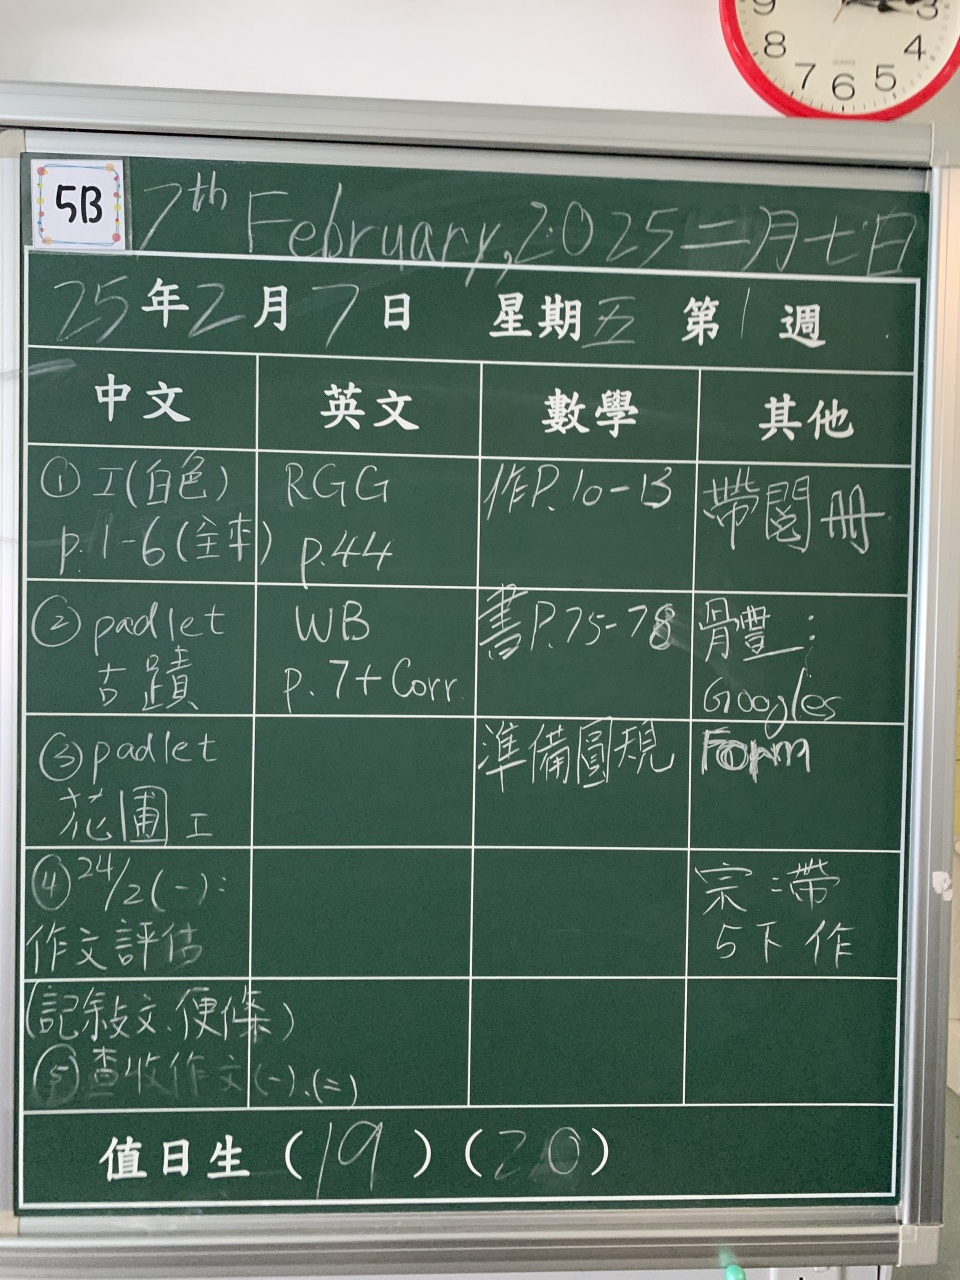 9 3
8 4
7 6 5
5B
7th February, 2025 二月七日
25年2月7日 星期五 第1週
中文 英文 數學 其他
①工(白色)
p.1-6(全本)
RGG
p.44
作P.10-13
帶閱冊
②padlet
古蹟
WB
p.7+Corr.
書P.75-78
骨豐:
Googles
Form
③padlet
花圃工
準備圓規
④24/2(一):
作文評估
(記敍文、便條)
⑤查收作文(一).(二)
宗:帶
5下作
值日生(19)(20)